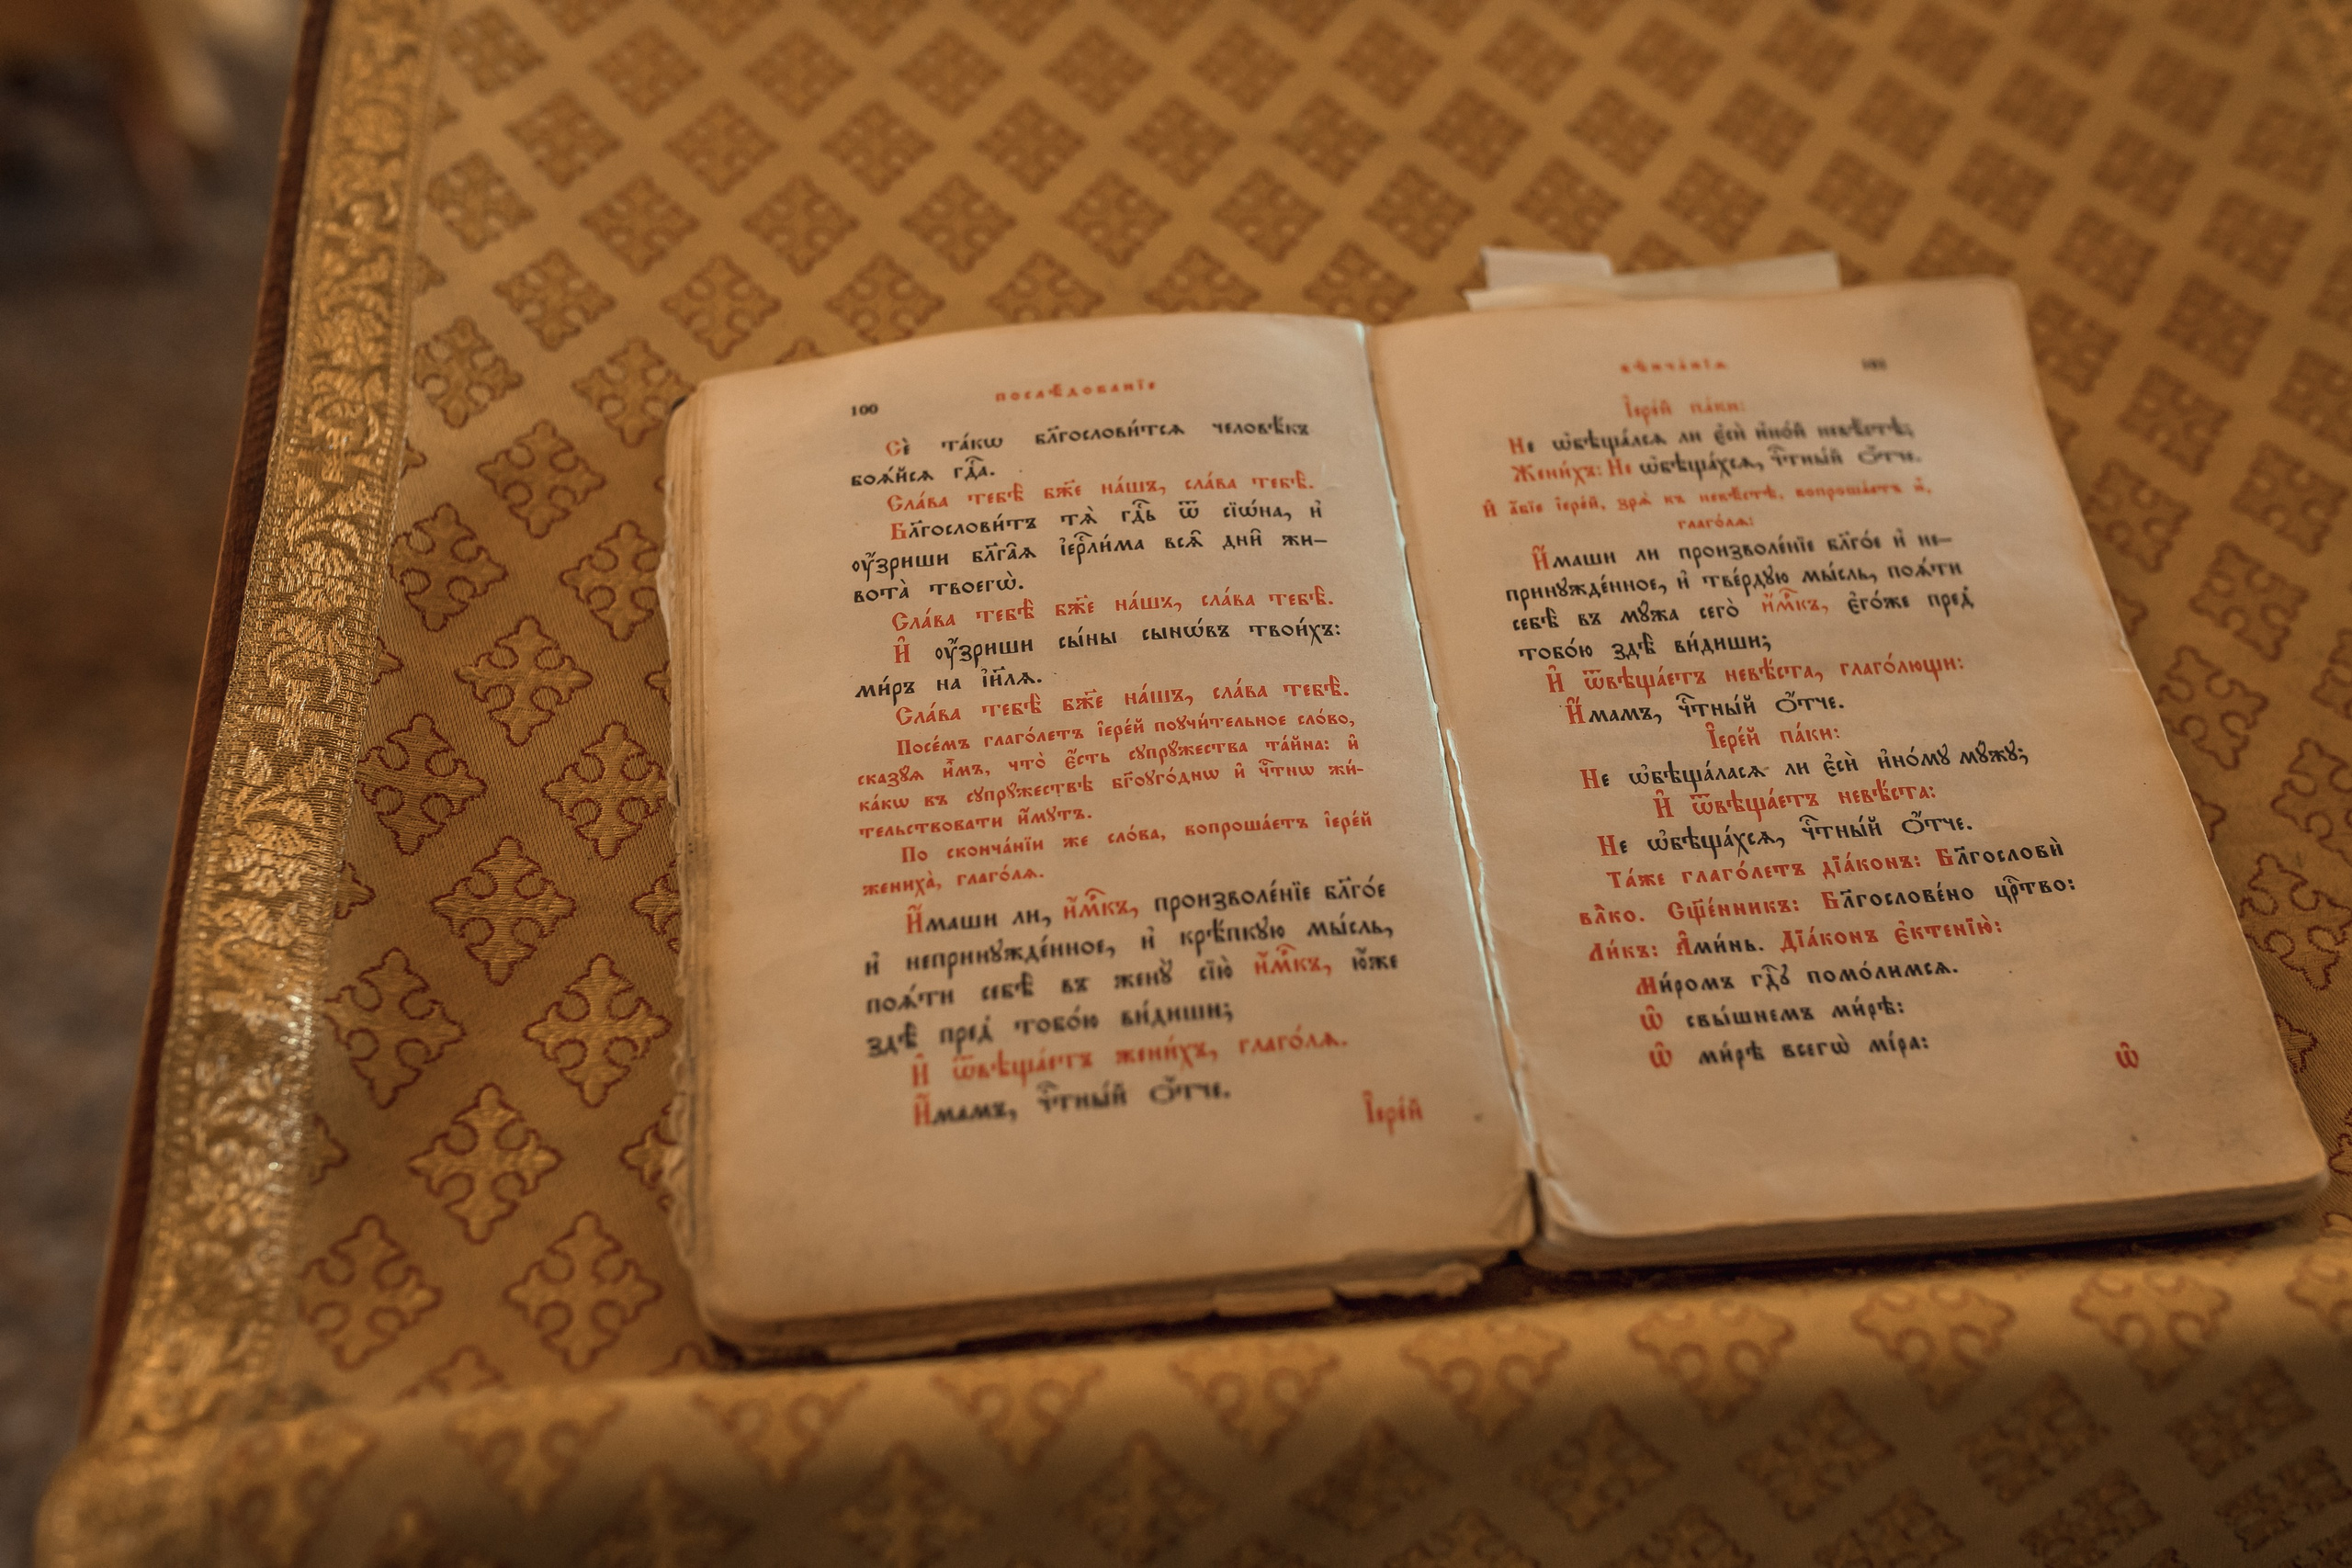 100
послѣ́дованїе
Сѐ та́кѡ бл҃гослови́тсѧ человѣ́къ
боѧ́йсѧ гдⷭ҇а.
Сла́ва тебѣ̀ бж҃е на́шъ, сла́ва тебѣ̀.
Бл҃гослови́тъ тѧ̀ гдⷭ҇ь ѿ сїѡ́на, и҆
ᲂу҆́зриши бл҃га̑ѧ і҆ерⷭ҇ли́ма всѧ̑ дни̑ жи-
вота̀ твоегѡ̀.
Сла́ва тебѣ̀ бж҃е на́шъ, сла́ва тебѣ̀.
И҆ ᲂу҆́зриши сы́ны сынѡ́въ твои́хъ:
ми́ръ на і҆и҃лѧ.
Сла́ва тебѣ̀ бж҃е на́шъ, сла́ва тебѣ̀.
Посе́мъ глаго́летъ і҆ере́й поꙋчи́тельное сло́во,
сказꙋѧ и҆̀мъ, что̀ є҆́сть сꙋпрꙋ́жества та́йна: и҆
ка́кѡ въ сꙋпрꙋ́жествѣ бг҃оуго́днѡ и҆ чⷭ҇тнѡ жи́-
тельствовати и҆́мꙋтъ.
По сконча́нїи же сло́ва, вопроша́етъ і҆ере́й
жениха̀, глаго́лѧ.
И҆́маши ли, и҆м҃къ, произволе́нїе бл҃го́е
и҆ непринꙋжде́нное, и҆ крѣ́пкꙋю мы́сль,
поѧ́ти себѣ̀ въ женꙋ̀ сїю̀ и҆м҃къ, ю҆́же
здѣ̀ пред̾ тобо́ю ви́диши;
И҆ ѿвѣща́етъ жени́хъ, глаго́лѧ.
И҆́мамъ, чⷭ҇тны́й ѻ҆́тче.
І҆ере́й
вѣнча́нїѧ
І҆ере́й па́ки:
Не ѡ҆бѣща́лсѧ ли є҆сѝ и҆но́й невѣ́стѣ;
Жени́хъ: Не ѡ҆бѣща́хсѧ, чⷭ҇тны́й ѻ҆́тче.
И҆ а҆́бїе і҆ере́й, зрѧ̀ къ невѣ́стѣ, вопроша́етъ ю҆̀,
глаго́лѧ:
И҆́маши ли произволе́нїе бл҃го́е и҆ не-
принꙋжде́нное, и҆ тве́рдꙋю мы́сль, поѧ́ти
себѣ̀ въ мꙋ́жа сего̀ и҆м҃къ, є҆го́же пред̾
тобо́ю здѣ̀ ви́диши;
И҆ ѿвѣща́етъ невѣ́ста, глаго́лющи:
И҆́мамъ, чⷭ҇тны́й ѻ҆́тче.
І҆ере́й па́ки:
Не ѡ҆бѣща́ласѧ ли є҆сѝ и҆но́мꙋ мꙋ́жꙋ;
И҆ ѿвѣща́етъ невѣ́ста:
Не ѡ҆бѣща́хсѧ, чⷭ҇тны́й ѻ҆́тче.
Та́же глаго́летъ дїа́конъ: Бл҃гословѝ
влⷣко. Сщ҃е́нникъ: Бл҃гослове́но црⷭ҇тво:
Ли́къ: А҆ми́нь. Дїа́конъ є҆ктенїю̀:
Ми́ромъ гдⷭ҇ꙋ помо́лимсѧ.
Ѡ҆ свы́шнемъ ми́рѣ:
Ѡ҆ ми́рѣ всегѡ̀ мі́ра:
Ѡ҆